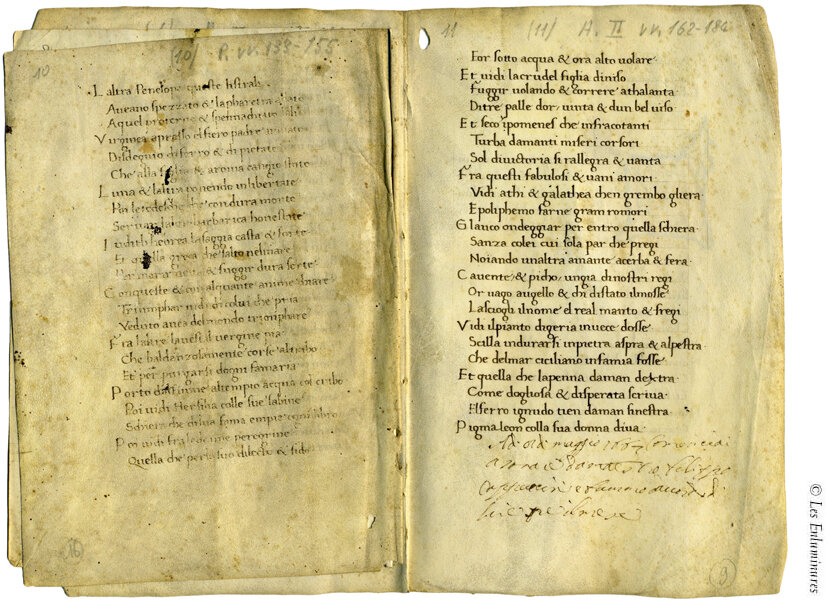 10
(10) P. vv. 133-155
L altra Penelope queste li strali
Aveano spezzato & la pharetra allato
A quel proteruo & spennachiate lali
V irginea apresso el fiero padre armato
Di sdegnio di ferro & di pietate
L una & laltra ponendo in libertate
Poi le tedesche che con dura morte
Seruan la lor barbarica honestate
I udith hebrea la saggia casta & forte
Et quella greca che salto nel mare
Per morir & fuggir dura sorte
C on queste & con alquante anime chiare
Triumphar uidi di colui che pria
Veduto auea del mondo triumphare
F ra laltre la uestal uergine pia
Che baldanzosamente corse al tibro
Et per purgarsi dogni fama ria
P orto dal fiume al tempio acqua col cribo
Poi uidi Hersilia colle sue sabine
Schiera che di sua fama empie ogni libro
P oi uidi fra le donne peregrine
Quella che per lo suo dilecto & fido
16
11
(11) A. II vv. 162-184
For sotto acqua & ora alto uolare
Et uidi la crudel figlia di niso
Fuggir uolando & correre athalanta
Di tre palle dor uinta & dun bel uiso
Et seco ipomenes che infra cotanti
Turba damanti miseri corsori
Sol di uictoria si rallegra & uanta
F ra questi fabulosi & uani amori
Vidi athi & galathea chen grembo gliera
E poliphemo farne gram romori
G lauco ondeggiar per entro quella schiera
Sanza colei cui sola par che pregi
Noiando unaltra amante acerba & fera
C auente & picho, un gia di nostri regi
Or uago augello & chi di stato il mosse
Lasciogli il nome el real manto & fregi
V idi il pianto di geria in uece dosse
Scilla indurarsi in pietra aspra & alpestra
Che del mar ciciliano infamia fosse
Et quella che la penna da man dextra
Come dogliosa & disperata scriua
El ferro ignudo tien da man sinestra
P igmaleon colla sua donna diua
3
© Les Enluminures